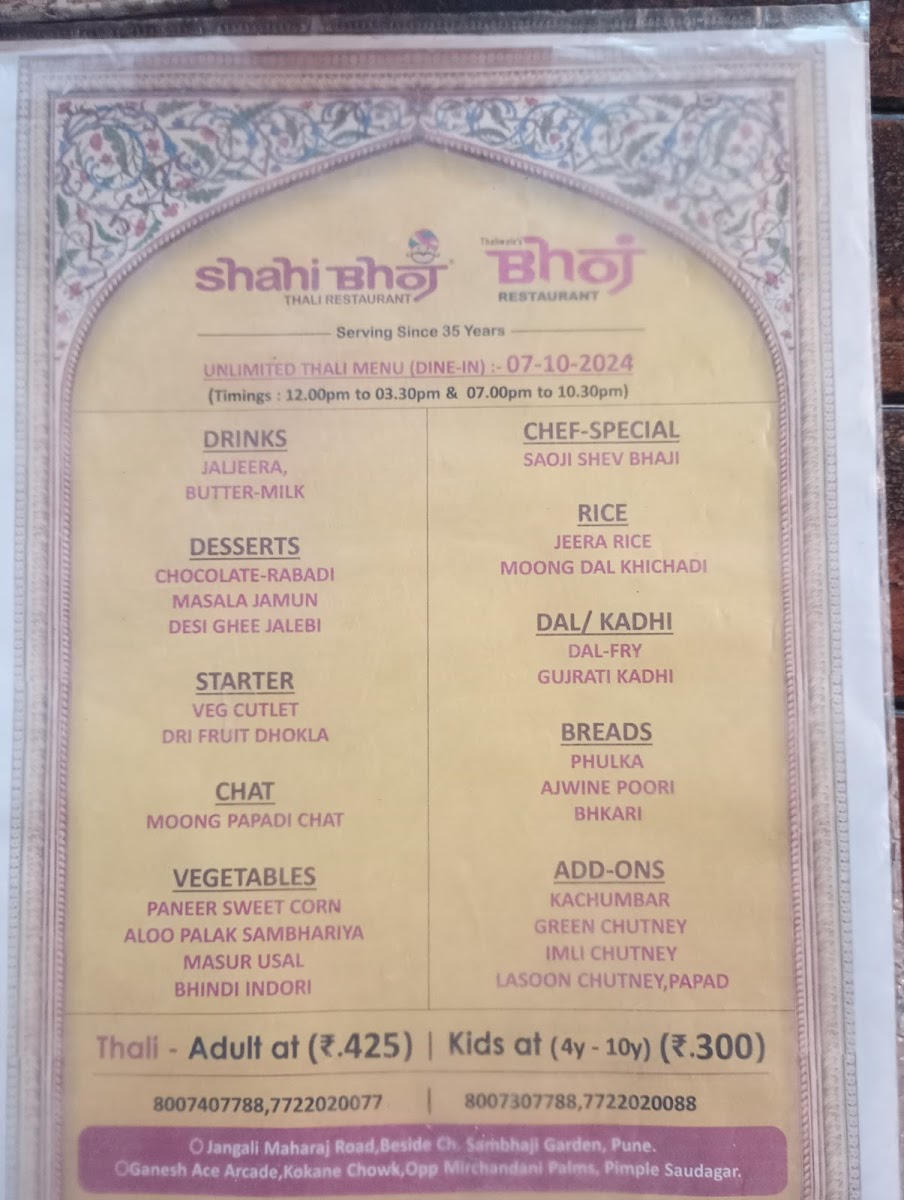 Shahi Bhoj
THALI RESTAURANT
Thaliwale's
Bhoj
RESTAURANT
Serving Since 35 Years
UNLIMITED THALI MENU (DINE-IN) :- 07-10-2024
(Timings : 12.00pm to 03.30pm & 07.00pm to 10.30pm)
DRINKS
JALJEERA,
BUTTER-MILK
DESSERTS
CHOCOLATE-RABADI
MASALA JAMUN
DESI GHEE JALEBI
STARTER
VEG CUTLET
DRI FRUIT DHOKLA
CHAT
MOONG PAPADI CHAT
VEGETABLES
PANEER SWEET CORN
ALOO PALAK SAMBHARIYA
MASUR USAL
BHINDI INDORI
CHEF-SPECIAL
SAOJI SHEV BHAJI
RICE
JEERA RICE
MOONG DAL KHICHADI
DAL/ KADHI
DAL-FRY
GUJRATI KADHI
BREADS
PHULKA
AJWINE POORI
BHKARI
ADD-ONS
KACHUMBAR
GREEN CHUTNEY
IMLI CHUTNEY
LASOON CHUTNEY,PAPAD
Thali - Adult at (₹.425) | Kids at (4y - 10y) (₹.300)
8007407788,7722020077 | 8007307788,7722020088
Jangali Maharaj Road,Beside Ch. Sambhaji Garden, Pune.
Ganesh Ace Arcade,Kokane Chowk,Opp Mirchandani Palms, Pimple Saudagar.